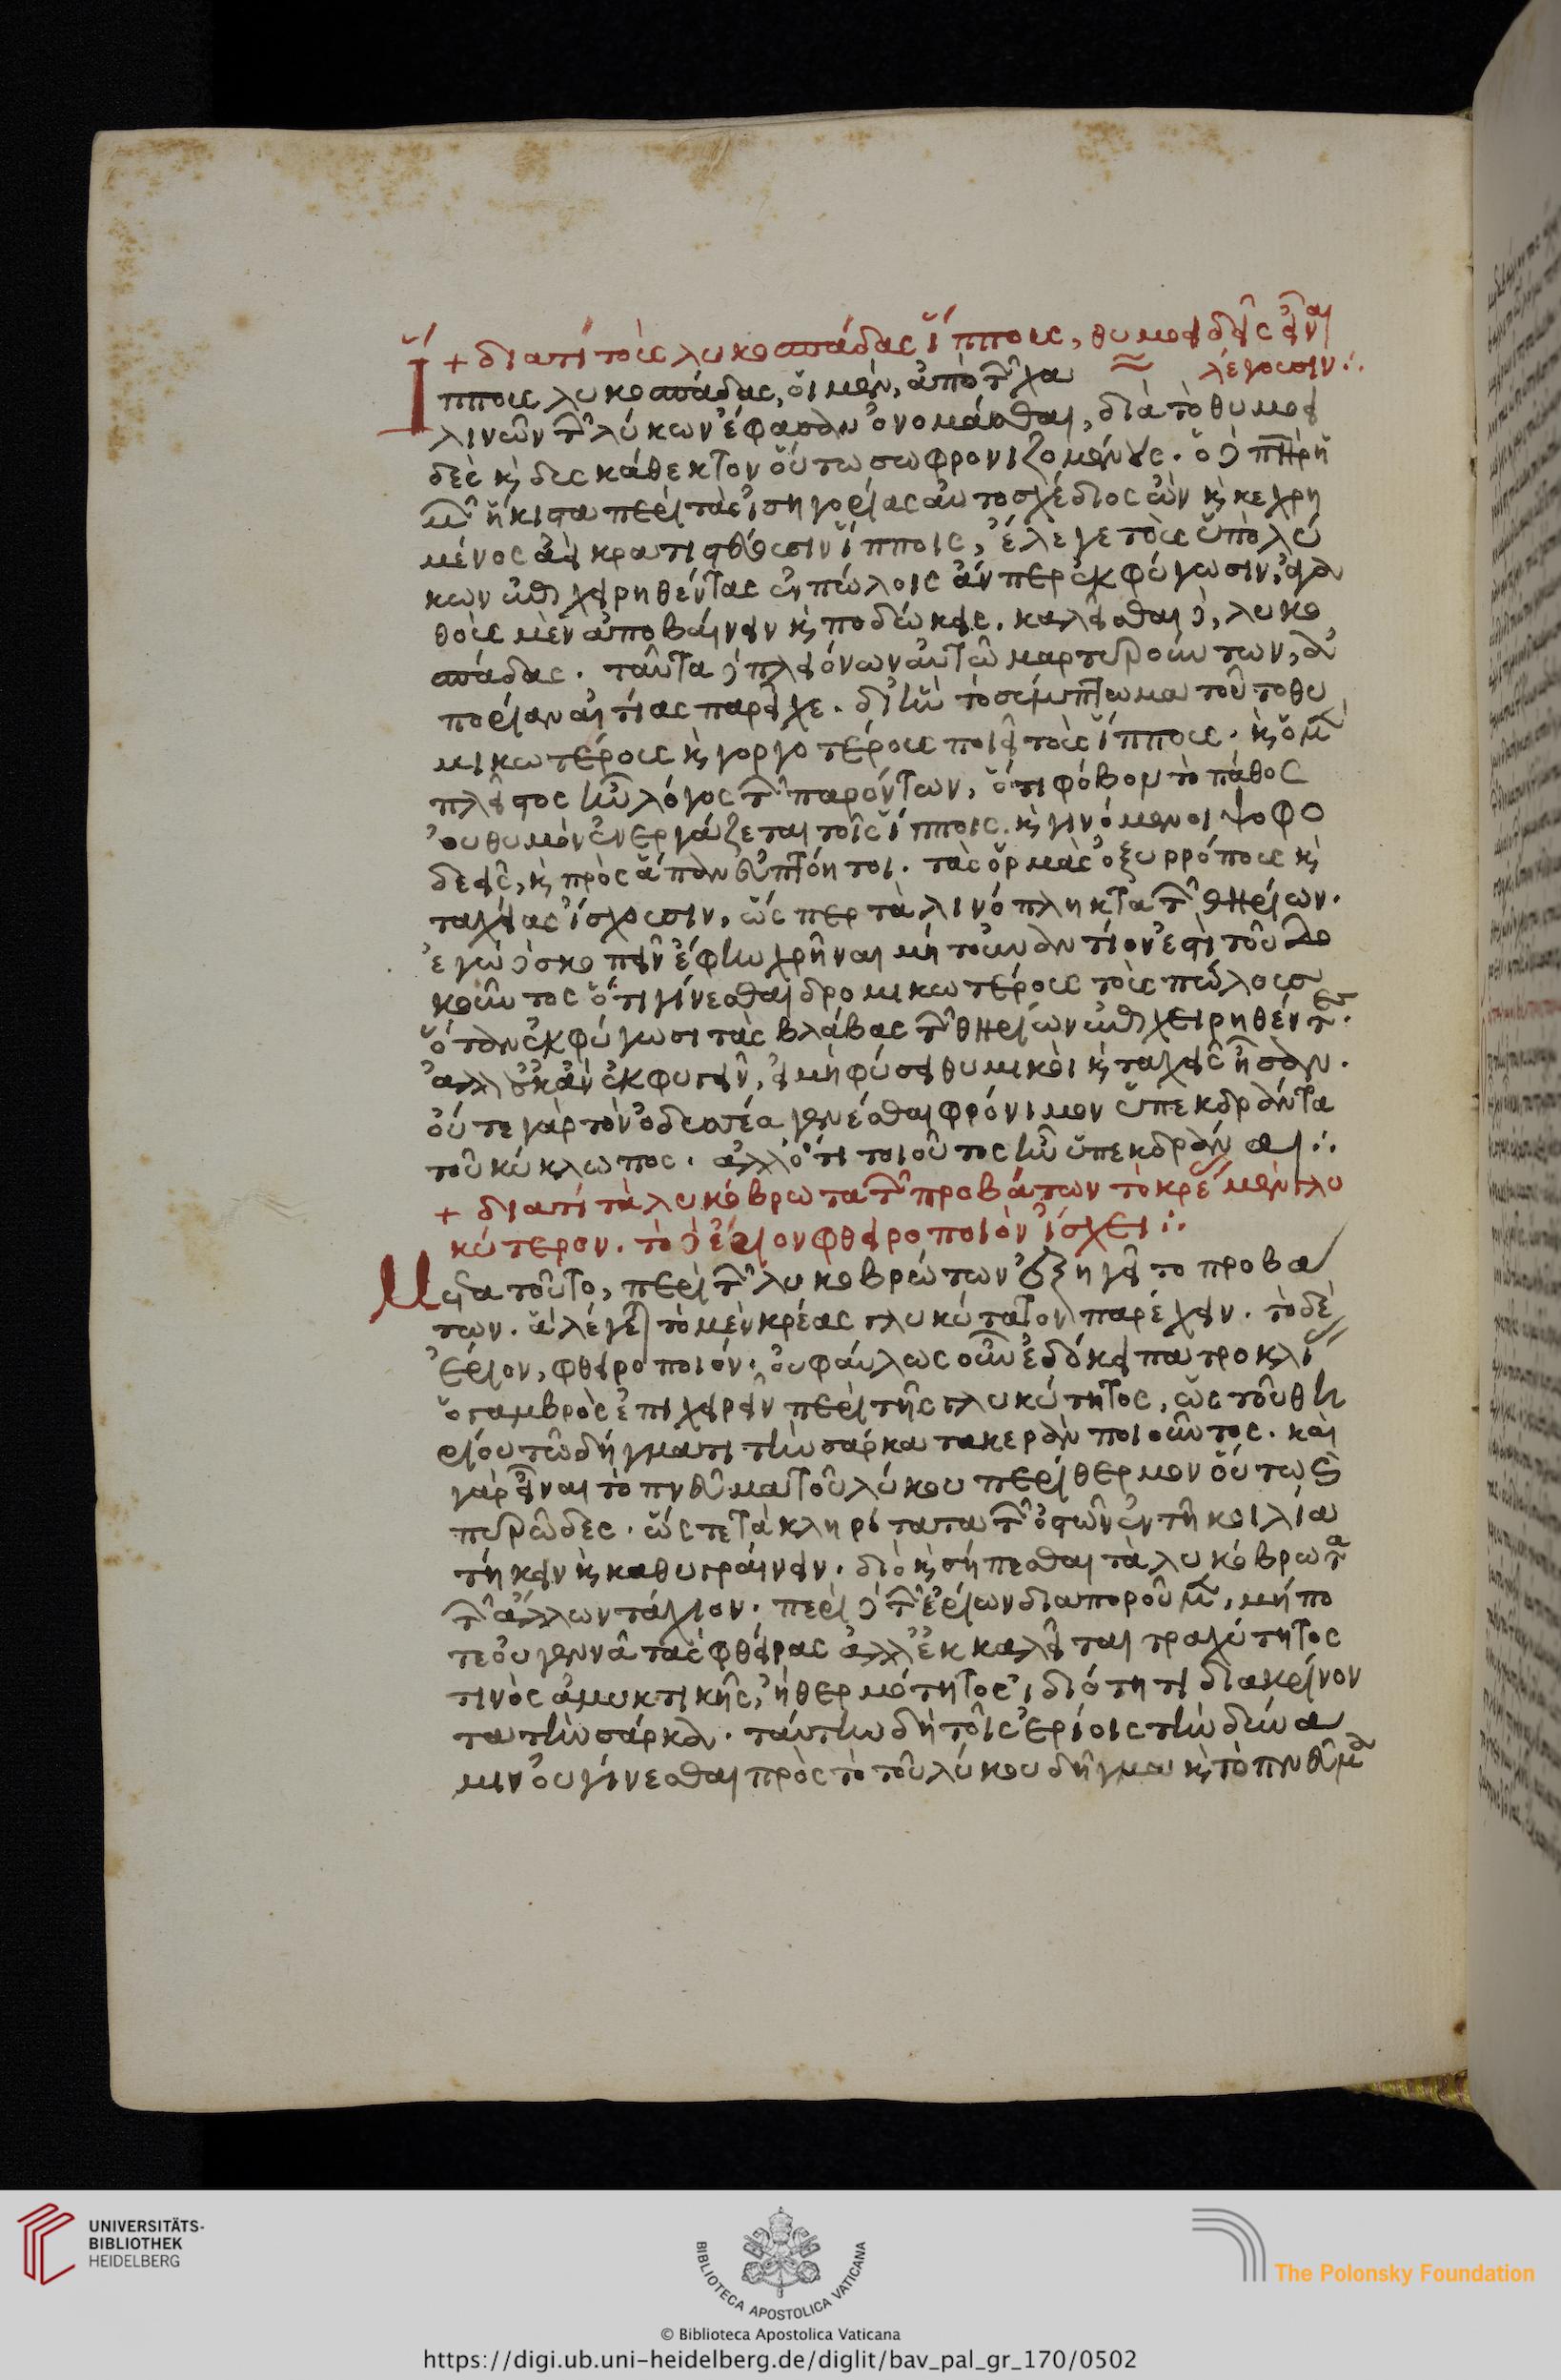 + διατί τοὺς λυκοσπάδας ἵππους, θυμοειδεῖς εἶναι
λέγουσιν:
Ἵππους λυκοσπάδας, οἱ μὲν, ἀπὸ τῶν χα
λινῶν τῶν λύκων ἔφασαν ὀνομάσθαι, διὰ τὸ θυμοει
δὲς κ δυσκάθεκτον οὕτω σωφρονιζομένους. ὁ δὲ πατὴρ ἡ
μῶν ἥκιστα περὶ τὰς εἰσηγορίας αὐτοσχέδιος ὢν κ κεχρη
μένος ἀεὶ κρατιστεύουσιν ἵπποις, ἔλεγε τοὺς ὑπὸ λύ
κων ἐπιχειρηθέντας ἐν πώλοις ἄνπερ ἐκφύγωσιν, ἀγα
θοὺς μὲν ἀποβαίνειν κ ποδώκεις. καλεῖσθαι δὲ, λυκο
σπάδας. ταῦτα δὲ πλειόνων αὐτῶ μαρτυρούντων, ἀ
πορίαν αἰτίας παρεῖχε. δι' ἣν τὸ σύμπτωμα τοῦτο θυ
μικωτέρους κ γοργοτέρους ποιεῖ τοὺς ἵππους. κ ὁ μὲν
πλεῖστος ἦν λόγος τῶν παρόντων, ὅτι φόβον τὸ πάθος
οὐ θυμὸν ἐνεργάζεται τοῖς ἵπποις. κ γινόμενοι ψοφο
δεεῖς, κ πρὸς ἅπαν εὐπτόητοι. τὰς ὁρμὰς ὀξυρρόπους κ
ταχείας ἴσχουσιν, ὥσπερ τὰ λινόπληκτα τῶν θηρίων.
ἐγὼ δὲ σκοπεῖν ἔφην χρῆναι μὴ τοὐναντίον ἐστὶ τοῦ δο
κοῦντος ὅτι γίνεσθαι δρομικωτέρους τοὺς πώλους
ὅταν ἐκφύγωσι τὰς βλάβας τῶν θηρίων ἐπιχειρηθέντες.
ἀλλ' οὐκ ἂν ἐκφυγεῖν, εἰ μὴ φύσει θυμικοὶ κ ταχεῖς ἦσαν.
οὔτε γὰρ τὸν ὀδυσσέα γενέσθαι φρόνιμον ὑπεκδράντα
τοῦ κύκλωπος. ἀλλ' ὅτι τοιοῦτος ἦν ὑπεκδρᾶναι:
+ διατί τὰ λυκόβρωτα τῶν προβάτων τὸ κρέας μὲν γλυ
κύτερον. τὸ δὲ ἔριον φθειροποιὸν ἴσχει:
Μετὰ τοῦτο, περὶ τῶν λυκοβρώτων ἐζητεῖτο προβά
των. ἃ λέγεται τὸ μὲν κρέας γλυκύτατον παρέχειν. τὸ δὲ
ἔριον, φθειροποιόν. οὐ φαύλως οὖν ἐδόκει πατροκλίας
ὁ γαμβρὸς ἐπιχειρεῖν περὶ τῆς γλυκύτητος, ὡς τοῦ θη
ρίου τῶ δήγματι τὴν σάρκα τακερὰν ποιοῦντος. καὶ
γὰρ εἶναι τὸ πνεῦμα τοῦ λύκου περίθερμον οὕτως
πυρῶδες. ὥστε τὰ σκληρότατα τῶν ὀστῶν ἐν τῆ κοιλία
τήκειν κ καθυγραίνειν. διὸ κ σήπεσθαι τὰ λυκόβρωτα
τῶν ἄλλων τάχιον. περὶ δὲ τῶν ἐρίων διαποροῦμεν, μή πο
τε οὐ γεννᾶ τὰς φθεῖρας ἀλλ' ἐκκαλεῖται τραχύτητος
τινὸς ἀμυκτικῆς, ἢ θερμότητος ἰδιότητι διακρίνον
τα τὴν σάρκα. ταύτην δὴ τοῖς ἐρίοις τὴν δύνα
μιν οὐ γίνεσθαι πρὸς τὸ τοῦ λύκου δῆγμα κ τὸ πνεῦμα
UNIVERSITÄTS-
BIBLIOTHEK
HEIDELBERG
BIBLIOTECA APOSTOLICA VATICANA
The Polonsky Foundation
© Biblioteca Apostolica Vaticana
https://digi.ub.uni-heidelberg.de/diglit/bav_pal_gr_170/0502